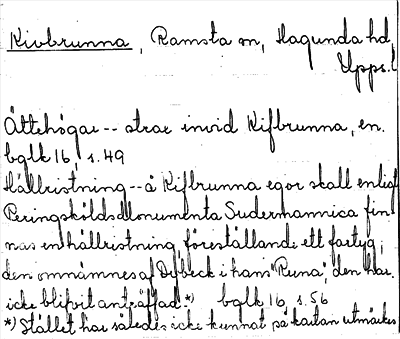 Kivbrunna, Ramsta sn, Hagunda hd,
Upps.l
Ättehögar -- strax invid Kifbrunna, en.
bglk 16, s. 49
Hällristning -- å Kifbrunna egor skall enligt
Peringskölds Monumenta Sudermannica fin-
nas en hällristning, föreställande ett fartyg;
den omnämnes af Dybeck i hans "Runa", den har
icke blifvit anträffad.*) bglk 16, s. 56
*) Stället har således icke kunnat på kartan utmärkes